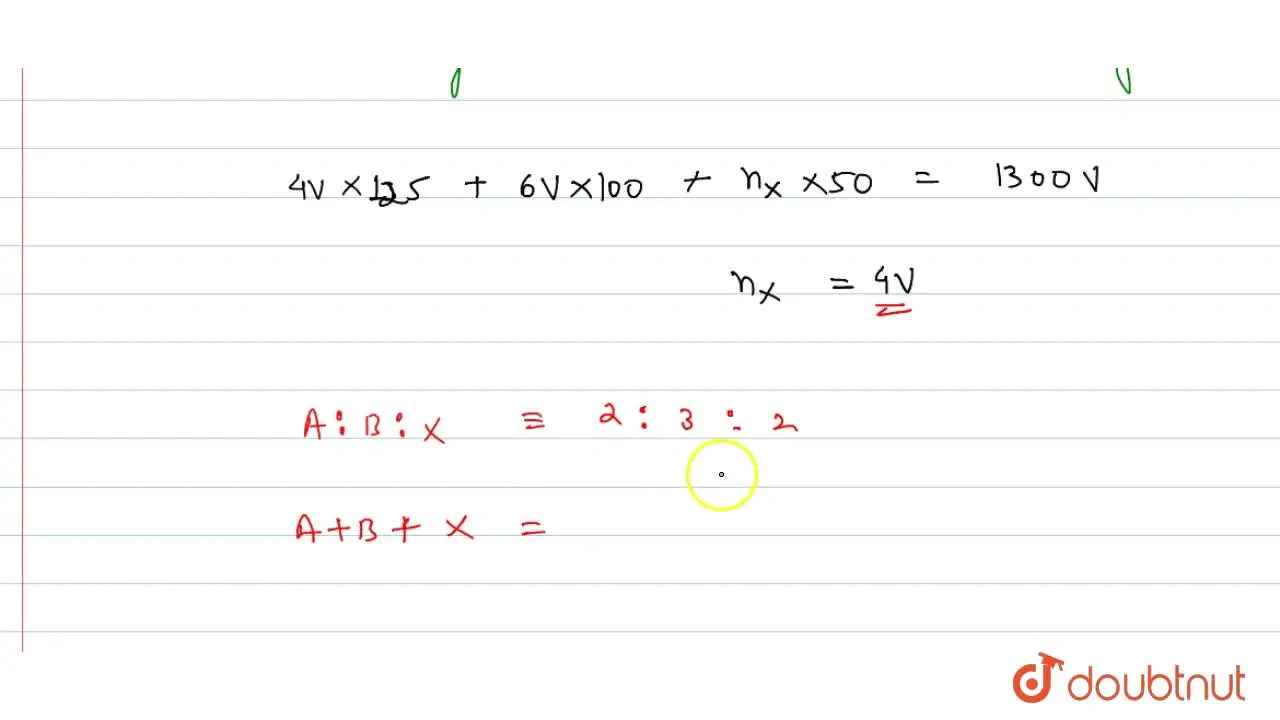 4V × 125 + 6V × 100 + nx × 50 = 1300 V
nx = 4V
A : B : X ≡ 2 : 3 : 2
A + B + X =
doubtnut